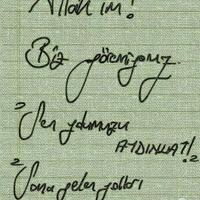 Allah'ım!
Biz göremiyoruz.
"Sen yolumuzu
AYDINLAT!."
"Sana gelen yolları